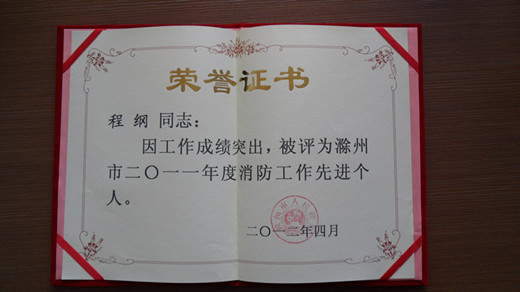 荣誉证书
程 纲 同志：
因工作成绩突出，被评为滁州
市二〇一一年度消防工作先进个
人。
二〇一二年四月